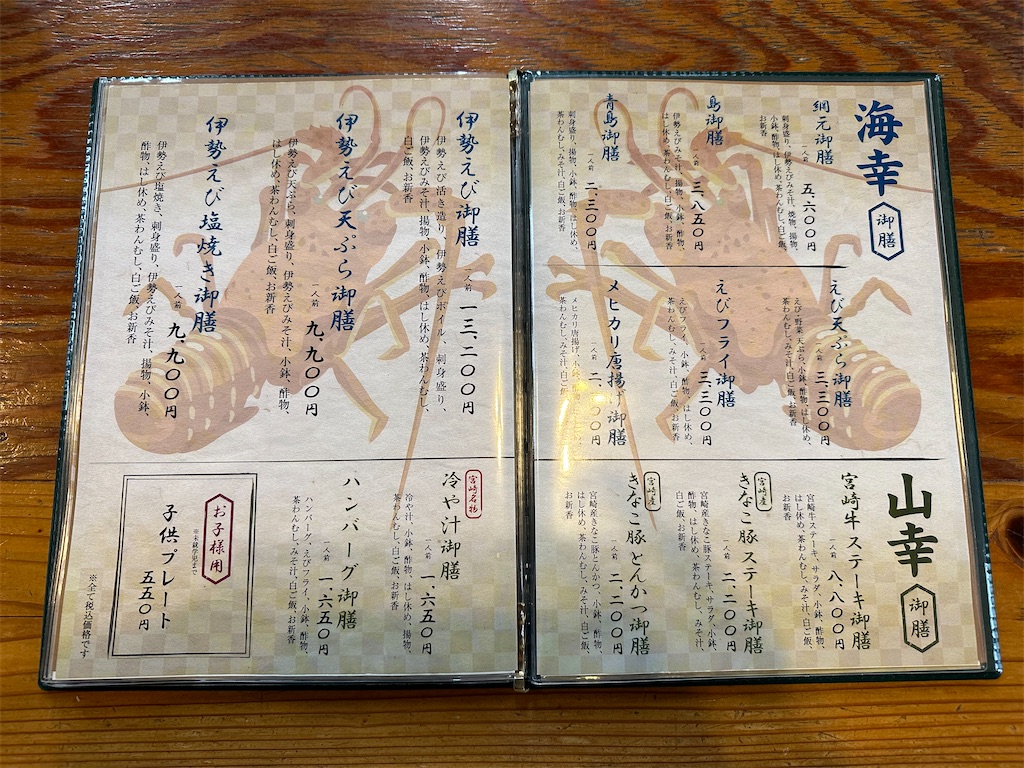 海幸
御膳
網元御膳
一人前 五、六〇〇円
刺身盛り、伊勢えびみそ汁、焼物、揚物、
小鉢、酢物、はし休め、茶わんむし、白ご飯、
お新香
島御膳
一人前 三、八五〇円
伊勢えびみそ汁、揚物、小鉢、酢物、
はし休め、茶わんむし、白ご飯、お新香
青島御膳
一人前 二、三〇〇円
刺身盛り、揚物、小鉢、酢物、はし休め、
茶わんむし、みそ汁、白ご飯、お新香
えび天ぷら御膳
一人前 三、三〇〇円
えび・野菜天ぷら、小鉢、酢物、はし休め、
茶わんむし、みそ汁、白ご飯、お新香
えびフライ御膳
一人前 三、三〇〇円
えびフライ、小鉢、酢物、はし休め、
茶わんむし、みそ汁、白ご飯、お新香
メヒカリ唐揚げ御膳
一人前 二、〇〇円
メヒカリ唐揚げ、小鉢、酢物、はし休め、
茶わんむし、みそ汁、白ご飯、お新香
山幸
御膳
宮崎牛ステーキ御膳
一人前 八、八〇〇円
宮崎牛ステーキ、サラダ、小鉢、酢物、
はし休め、茶わんむし、みそ汁、白ご飯、
お新香
宮崎産
きなこ豚ステーキ御膳
一人前 二、二〇〇円
宮崎産きなこ豚ステーキ、サラダ、小鉢、
酢物、はし休め、茶わんむし、みそ汁、
白ご飯、お新香
宮崎産
きなこ豚とんかつ御膳
一人前 二、二〇〇円
宮崎産きなこ豚とんかつ、小鉢、酢物、
はし休め、茶わんむし、みそ汁、白ご飯、
お新香
伊勢えび御膳
一人前 一三、二〇〇円
伊勢えび活き造り、伊勢えびボイル、刺身盛り、
伊勢えびみそ汁、揚物、小鉢、酢物、はし休め、茶わんむし、
白ご飯、お新香
伊勢えび天ぷら御膳
一人前 九、九〇〇円
伊勢えび天ぷら、刺身盛り、伊勢えびみそ汁、小鉢、酢物、
はし休め、茶わんむし、白ご飯、お新香
伊勢えび塩焼き御膳
一人前 九、九〇〇円
伊勢えび塩焼き、刺身盛り、伊勢えびみそ汁、揚物、小鉢、
酢物、はし休め、茶わんむし、白ご飯、お新香
宮崎名物
冷や汁御膳
一人前 一、六五〇円
冷や汁、小鉢、酢物、はし休め、揚物、
茶わんむし、白ご飯、お新香
ハンバーグ御膳
一人前 一、六五〇円
ハンバーグ、えびフライ、小鉢、酢物、
茶わんむし、みそ汁、白ご飯、お新香
お子様用
※未就学児まで
子供プレート
五五〇円
※全て税込価格です